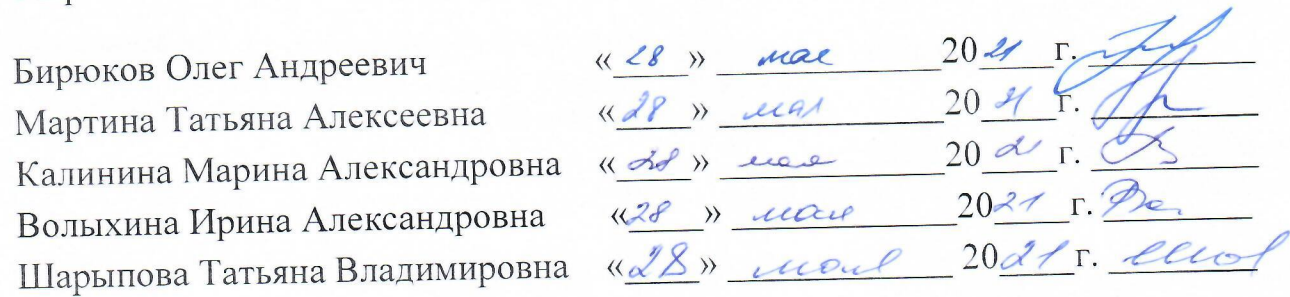 Бирюков Олег Андреевич «28» мая 2021 г.
Мартина Татьяна Алексеевна «28» мая 2021 г.
Калинина Марина Александровна «28» мая 2021 г.
Волыхина Ирина Александровна «28» мая 2021 г.
Шарыпова Татьяна Владимировна «28» мая 2021 г.